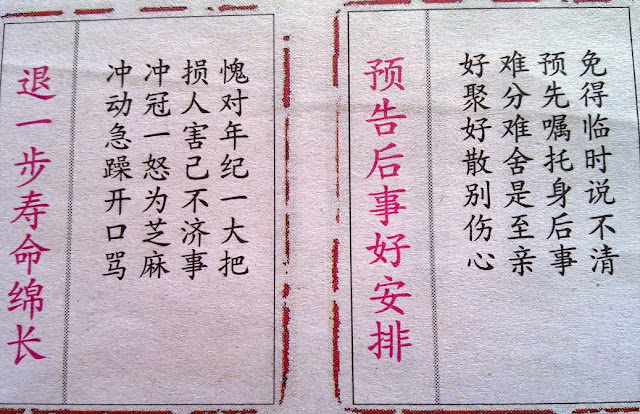 免得临时说不清
预先嘱托身后事
难分难舍是至亲
好聚好散别伤心
预告后事好安排
愧对年纪一大把
损人害己不济事
冲冠一怒为芝麻
冲动急躁开口骂
退一步寿命绵长